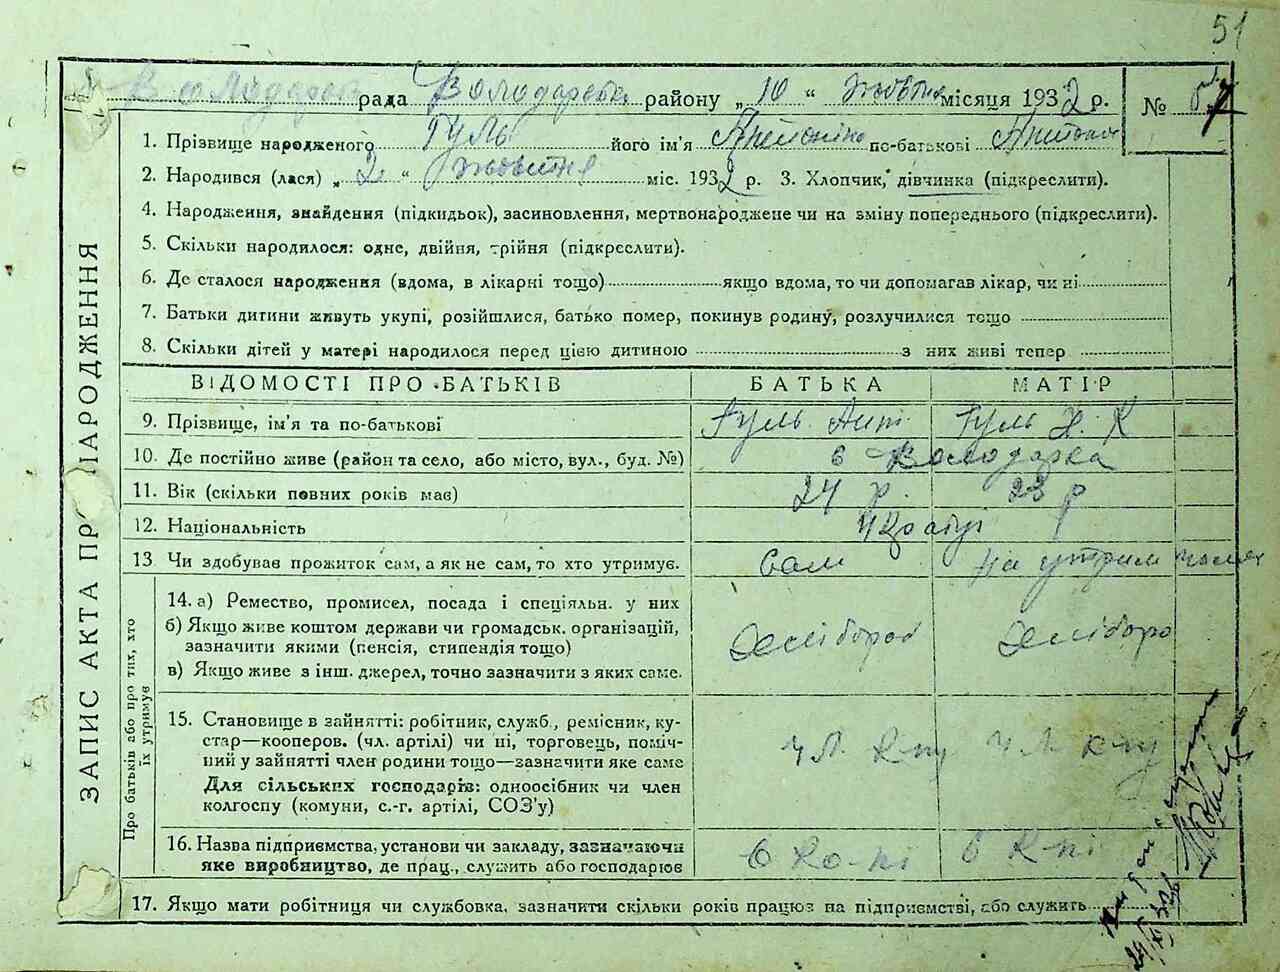 51
Володарська рада Володарська району „ 10 “ жовтня місяця 1932 р. № 57
ЗАПИС АКТА ПРО НАРОДЖЕННЯ
1. Прізвище народженого Гуль його ім'я Антоніна по-батькові
2. Народився (лася) „ 2 “ жовтня міс. 1932 р. 3. Хлопчик, дівчинка (підкреслити).
4. Народження, знайдення (підкидьок), засиновлення, мертвонароджене чи на зміну попереднього (підкреслити).
5. Скільки народилося: одне, двійня, трійня (підкреслити).
6. Де сталося народження (вдома, в лікарні тощо) якщо вдома, то чи допомагав лікар, чи ні
7. Батьки дитини живуть укупі, розійшлися, батько помер, покинув родину, розлучилися тощо
8. Скільки дітей у матері народилося перед цією дитиною з них живі тепер
ВІДОМОСТІ ПРО БАТЬКІВ БАТЬКА МАТІР
9. Прізвище, ім'я та по-батькові Гуль Ант Гуль Н. К
10. Де постійно живе (район та село, або місто, вул., буд. №) в Володарка
11. Вік (скільки повних років має) 24 р. 23 р
12. Національність
13. Чи здобував прожиток сам, а як не сам, то хто утримує. Сам на утрим
Про батьків або про тих, хто їх утримує
14. а) Ремество, промисел, посада і спеціяльн. у них
б) Якщо живе коштом держави чи громадськ. організацій,
зазначити якими (пенсія, стипендія тощо) хлібороб хліборо
в) Якщо живе з інш. джерел, точно зазначити з яких саме.
15. Становище в зайнятті: робітник, служб., ремісник, ку-
стар—кооперов. (чл. артілі) чи ні, торговець, поміч-
ний у зайнятті член родини тощо—зазначити яке саме чл. к-пу чл. к-пу
Для сільських господарів: одноосібник чи член
колгоспу (комуни, с.-г. артілі, СОЗ'у)
16. Назва підприємства, установи чи закладу, зазначаючи
яке виробництво, де прац., служить або господарює в ко-пі в к-пі
17. Якщо мати робітниця чи службовка, зазначити скільки років працює на підприємстві, або служить